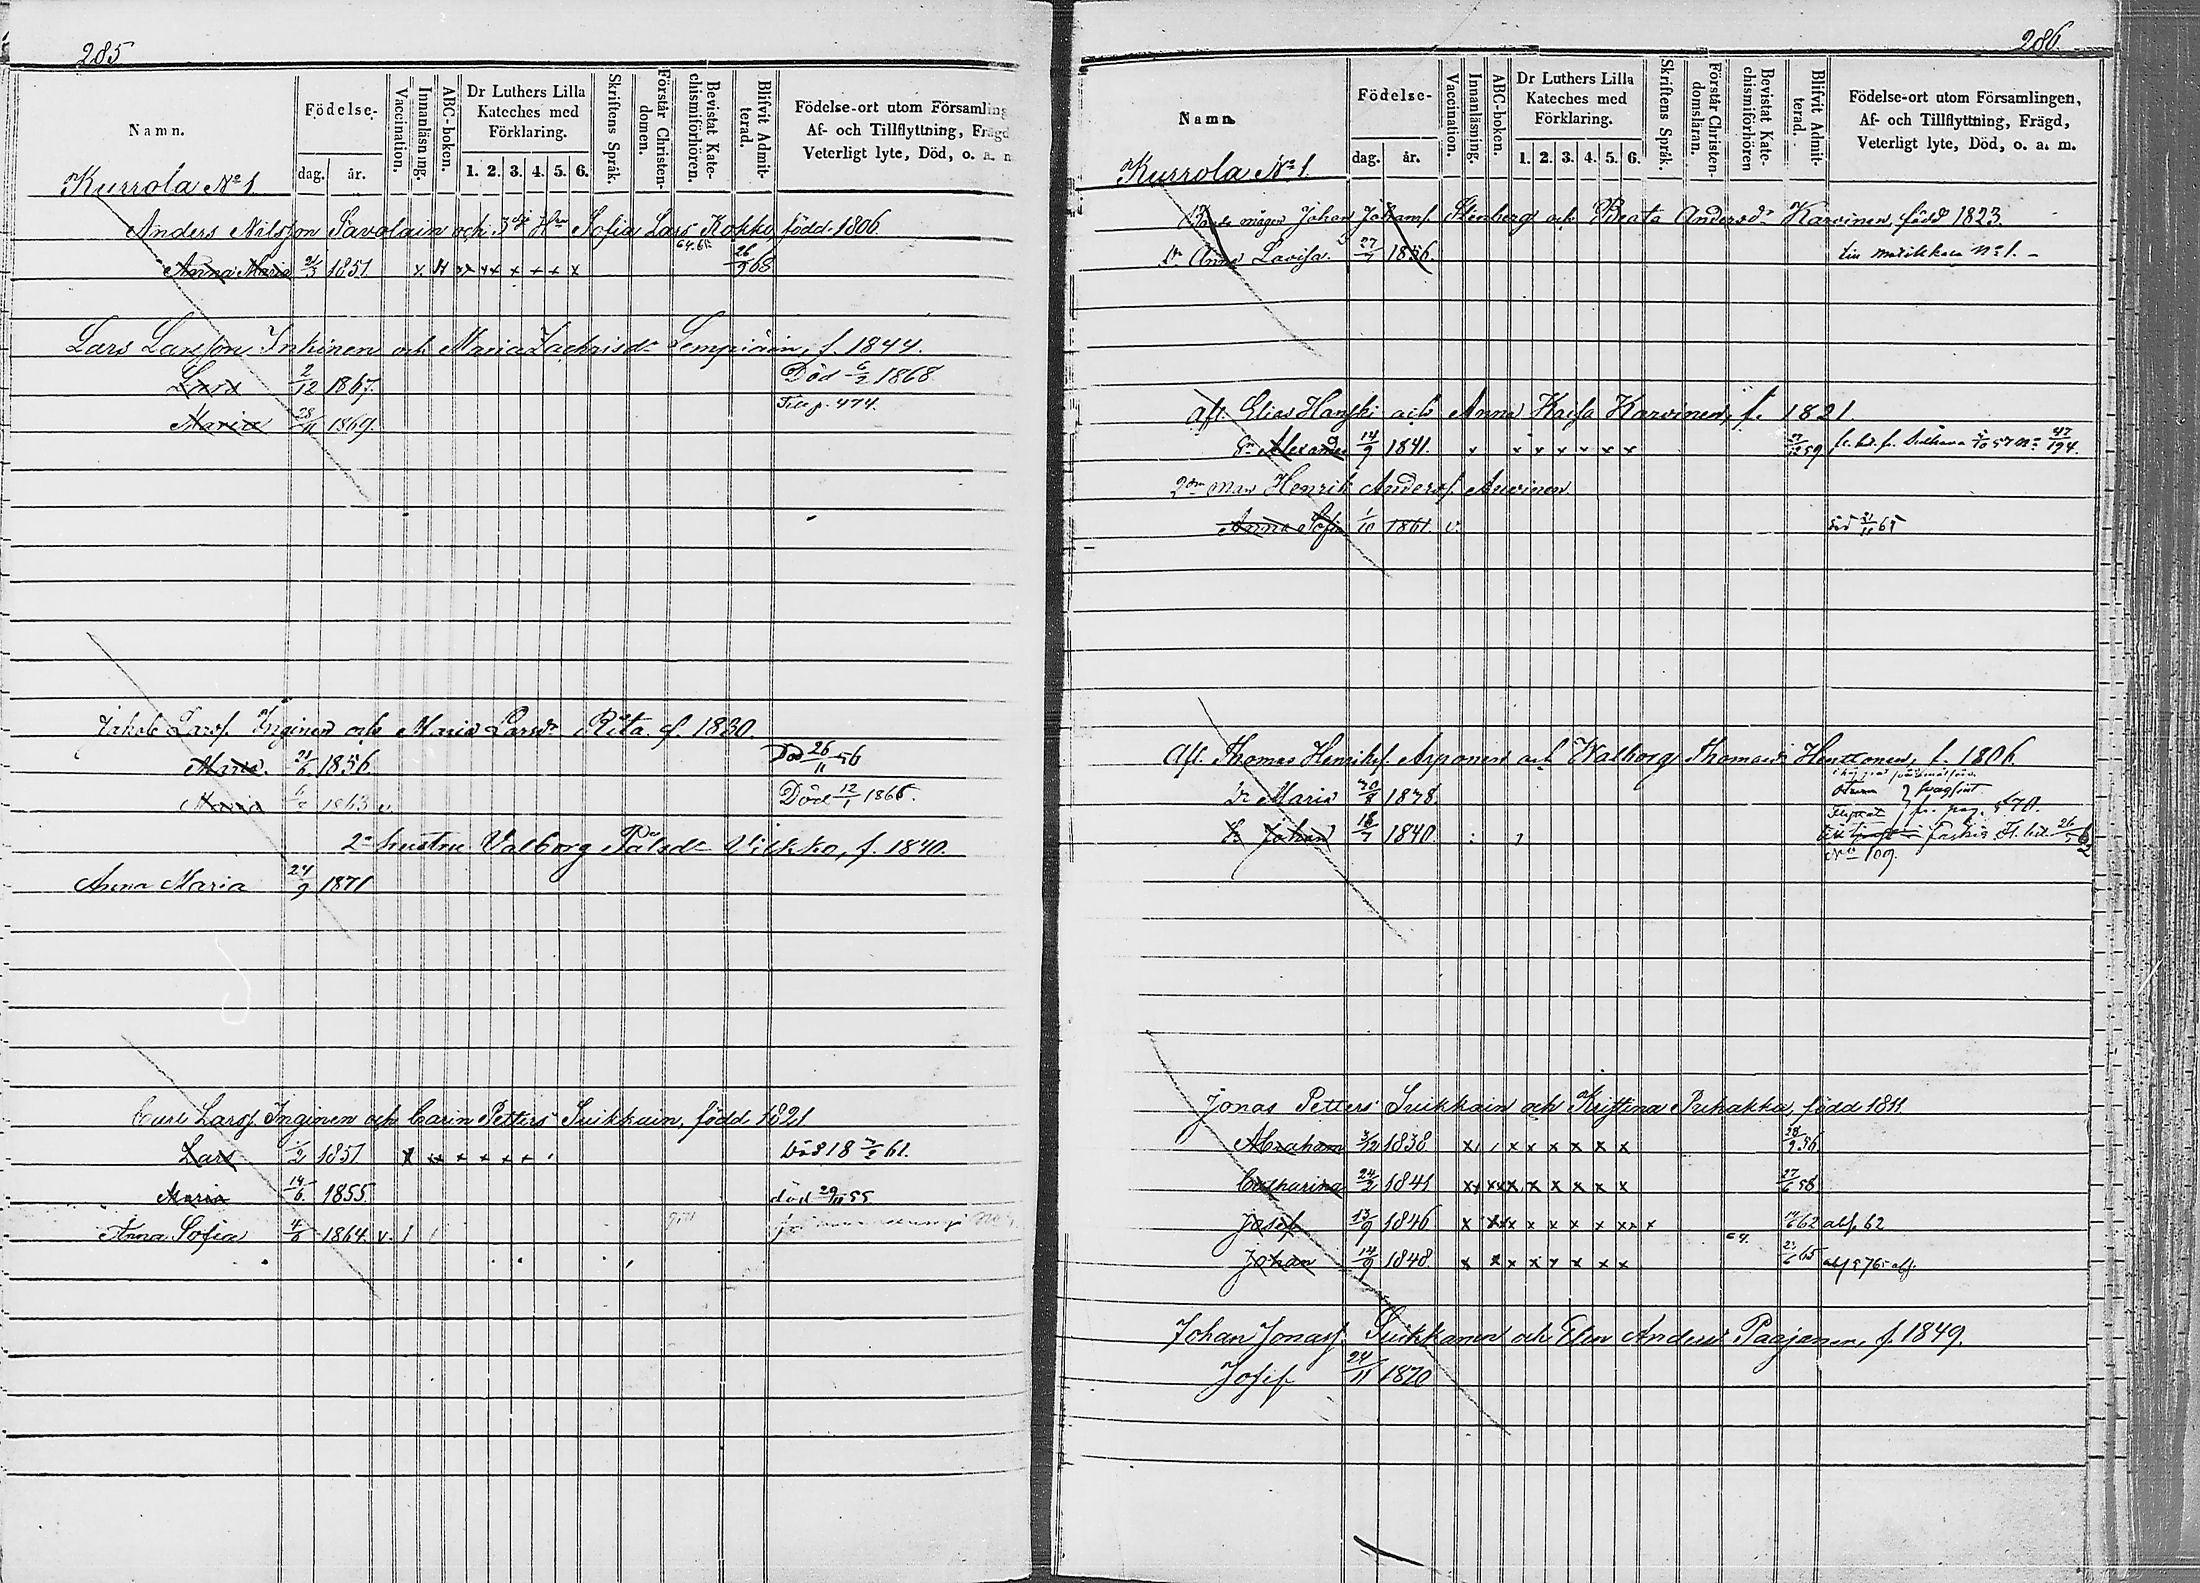 285
Namn.
Födelse-
dag. år.
Vaccination.
Innanläsning.
ABC-boken.
Dr Luthers Lilla Kateches med Förklaring.
1. 2. 3. 4. 5. 6.
Skriftens Språk.
Förstår Christendomen.
Bevistat Katechismiförhören.
Blifvit Admitterad.
Födelse-ort utom Församling
Af- och Tillflyttning, Frägd
Veterligt lyte, Död, o. a. m
Kurrola No 1.
Anders Nilsson Savolain och 3dje Hru Sofia Lars Kokko, född 1806
Anna Maria 21/3 1851. x x x x x x x 26/9 68
Lars Larsson Inkinen och Maria Zachrisdr Lempiäin, f. 1844.
Lars 2/12 1867. Död 6/2 1868
Maria 28/11 1869. Till p. 474.
Jakob Larsf. Inginen och Maria Larsdr Rita f. 1830.
Maria. 21/6 1856. Död 26/11 56
Maria 1863 v. Död 12/1 1865.
2a hustru Valborg Pålsdr Vilkko, f. 1840.
Anna Maria 24/9 1871
Carl Larsf. Inginen och Carin Petters Suikkain, född 1821
Lars 1/2 1851 x x x x x x 61.
Maria 14/6 1855. död 29/11 55
Anna Sofia 4/6 1864. v.
286.
Namn.
Födelse-
dag. år.
Vaccination.
Innanläsning.
ABC-boken.
Dr Luthers Lilla Kateches med Förklaring.
1. 2. 3. 4. 5. 6.
Skriftens Språk.
Förstår Christendomsläran.
Bevistat Katechismiförhören
Blifvit Admitterad.
Födelse-ort utom Församlingen,
Af- och Tillflyttning, Frägd,
Veterligt lyte, Död, o. a. m.
Kurrola No 1.
mågen Johan Johansf. Stenberg och Beata Andersdr Karvinen, född 1823.
Dr Anna Lovisa. 27/7 1856. No 1.
Afl. Elias Hanski och Anna Kaisa Karvinen, f. 1821.
Sn Alexander 14/9 1841. x x x x x x x 59
2dra man Henrik Andersf. Auvinen
Anna Sofia 1/10 1861. v. död 21/11 65
Afl. Thomas Henriksf. Arponen och Walborg Thomasdr Henttonen, f. 1806.
Dr Maria 1838.
Sn Johan 18/7 1840.
No 109.
Jonas Petters Suikkain och Kristina Puhakka, född 1811.
Abraham 3/12 1838 x x x x x x x 28/9 56
Catharina 24/2 1841 x x x x x x x x 27/6 58
Josef 13/9 1846 x x x x x x x x x 62
Johan 14/9 1848. x x x x x x x x 65
Johan Jonasf. Suikkanen och Elin Anders Paajanen, f. 1849.
Josef 24/11 1870